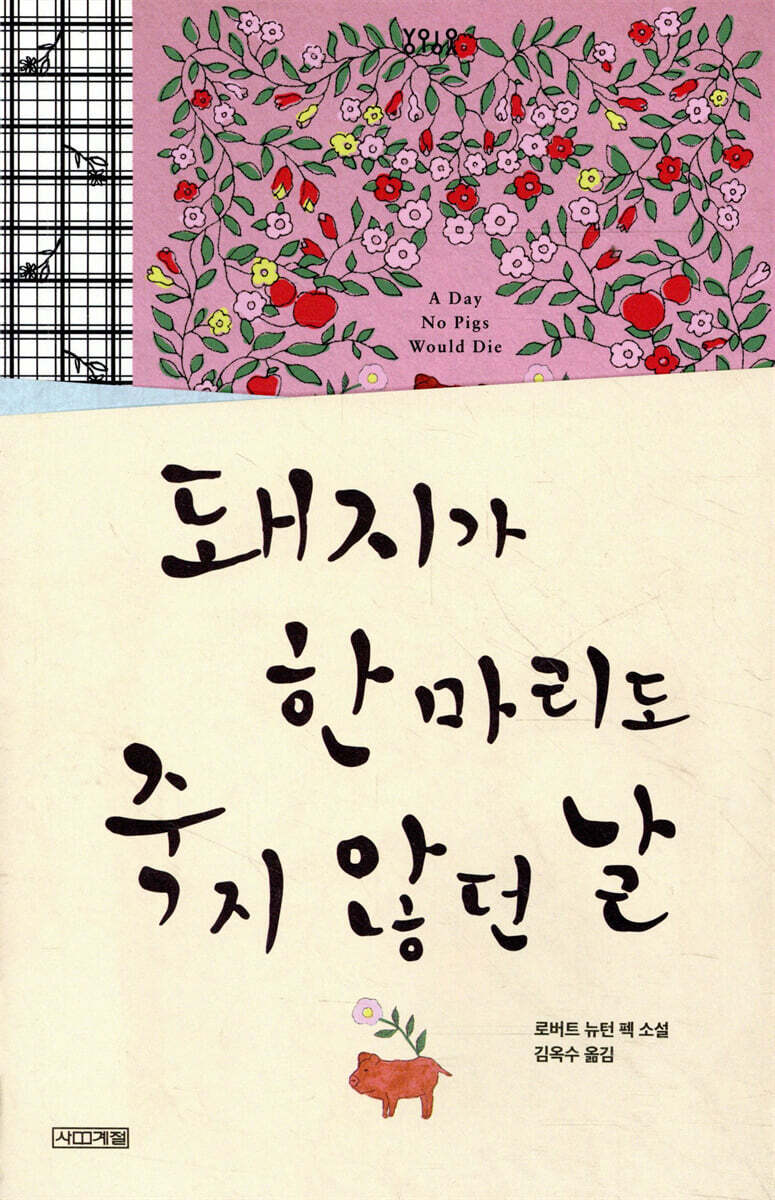 A Day
No Pigs
Would Die
돼지가
한 마리도
죽지 않던 날
로버트 뉴턴 펙 소설
김옥수 옮김
사계절